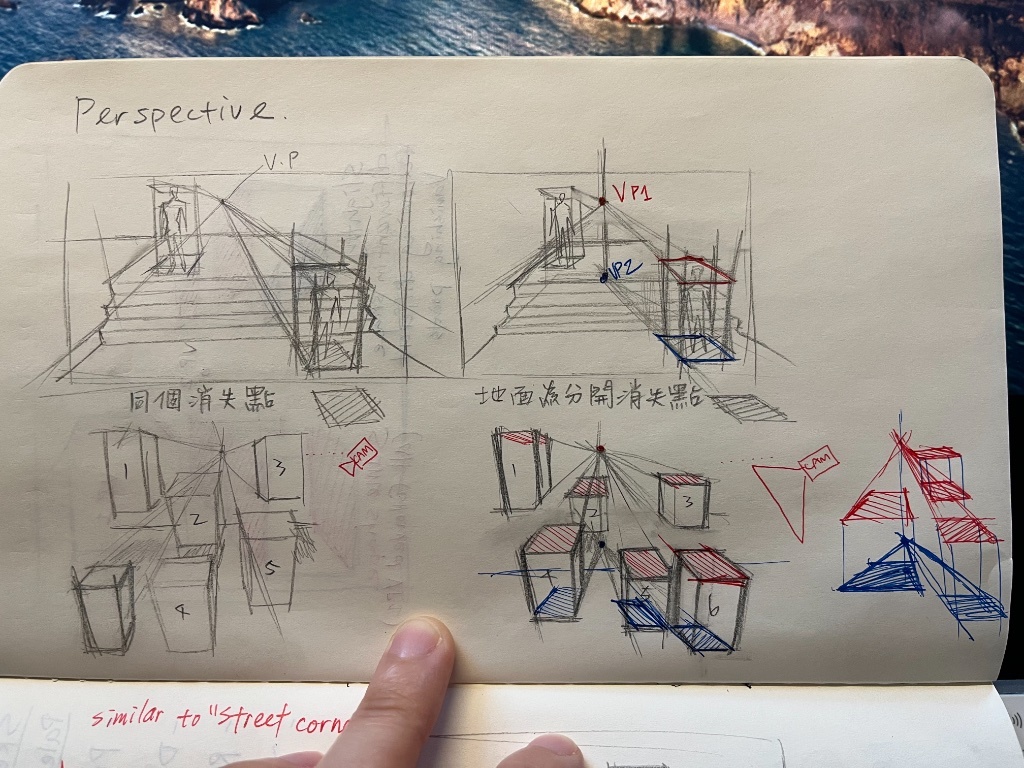 Perspective.
V.P
VP1
VP2
同個消失點
地面為分開消失點
1
2
3
CAM
4
5
1
2
3
CAM
4
5
6
similar to "street corn